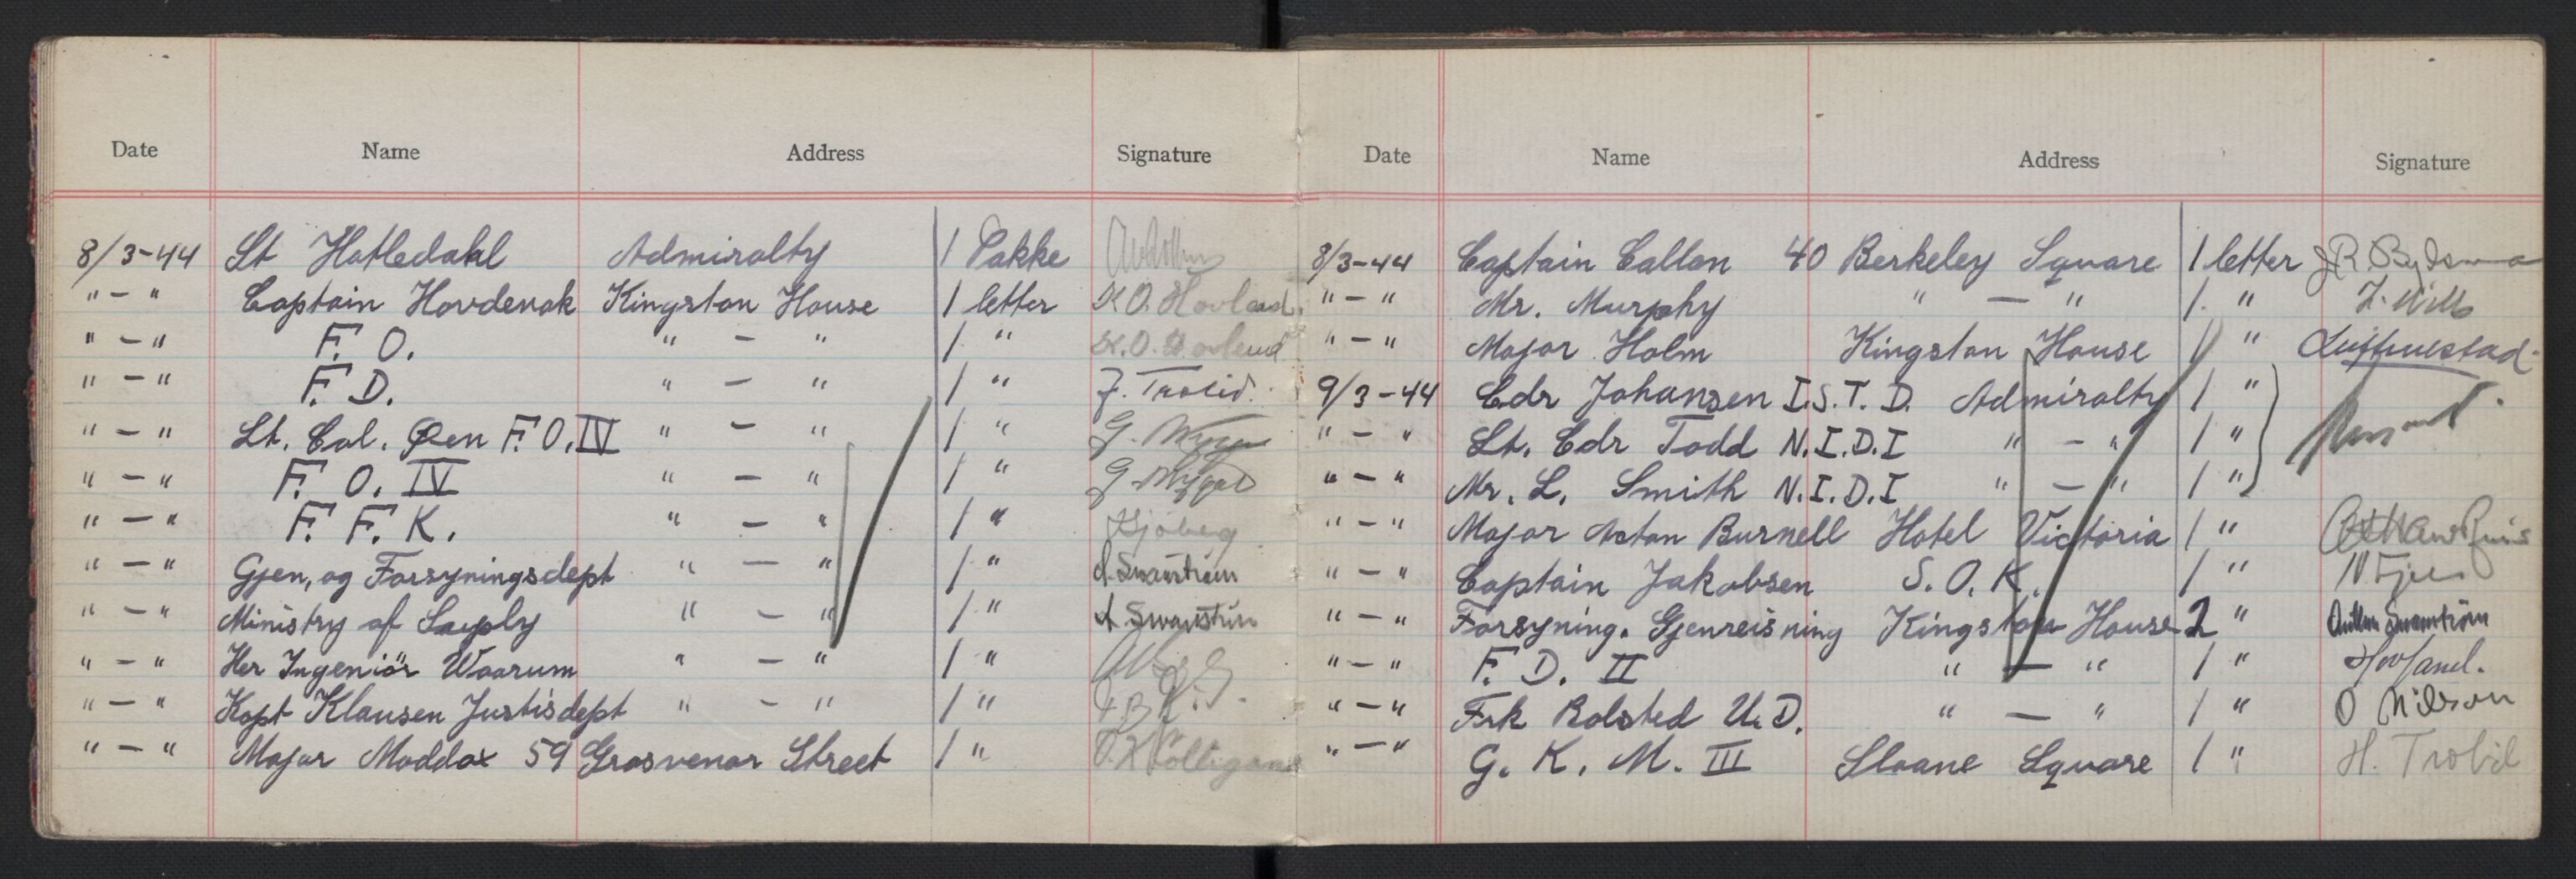 Date Name Address Signature
8/3-44 Lt Hatledahl Admiralty 1 Pakke
" - " Captain Hovdenak Kingston House 1 letter K.O. Hovland.
" - " F. O. " - " 1 " K.O. Hovland
" - " F. D. " - " 1 "
" - " Lt. Col. Øen F. O. IV " - " 1 "
" - " F. O. IV " - " 1 "
" - " F. F. K. " - " 1 " Sjøberg
" - " Gjen, og Forsyningsdept " - " 1 " A. Swanström
" - " Ministry of Supply " - " 1 " A. Swanström
" - " Her Ingeniör Waarum " - " 1 "
" - " Kapt Klausen Justisdept " - " 1 "
" - " Major Maddox 59 Grosvenor Street 1 "
Date Name Address Signature
8/3-44 Captain Callan 40 Berkeley Square 1 letter
" - " Mr. Murphy " - " 1 "
" - " Major Holm Kingston House 1 "
9/3-44 Cdr Johansen I.S.T.D. Admiralty 1 "
" - " Lt. Cdr Todd N.I.D.I " - " 1 "
" - " Mr. L. Smith N.I.D.I " - " 1 "
" - " Major Acton Burnell Hotel Victoria 1 "
" - " Captain Jakobsen S.O.K. 1 "
" - " Forsyning. Gjenreisning Kingston House 2 " Swanström
" - " F. D. II " - " 1 " Hovland.
" - " Frk Rolsted U.D. " - " 1 " O Nilson
" - " G. K. M. III Sloane Square 1 "